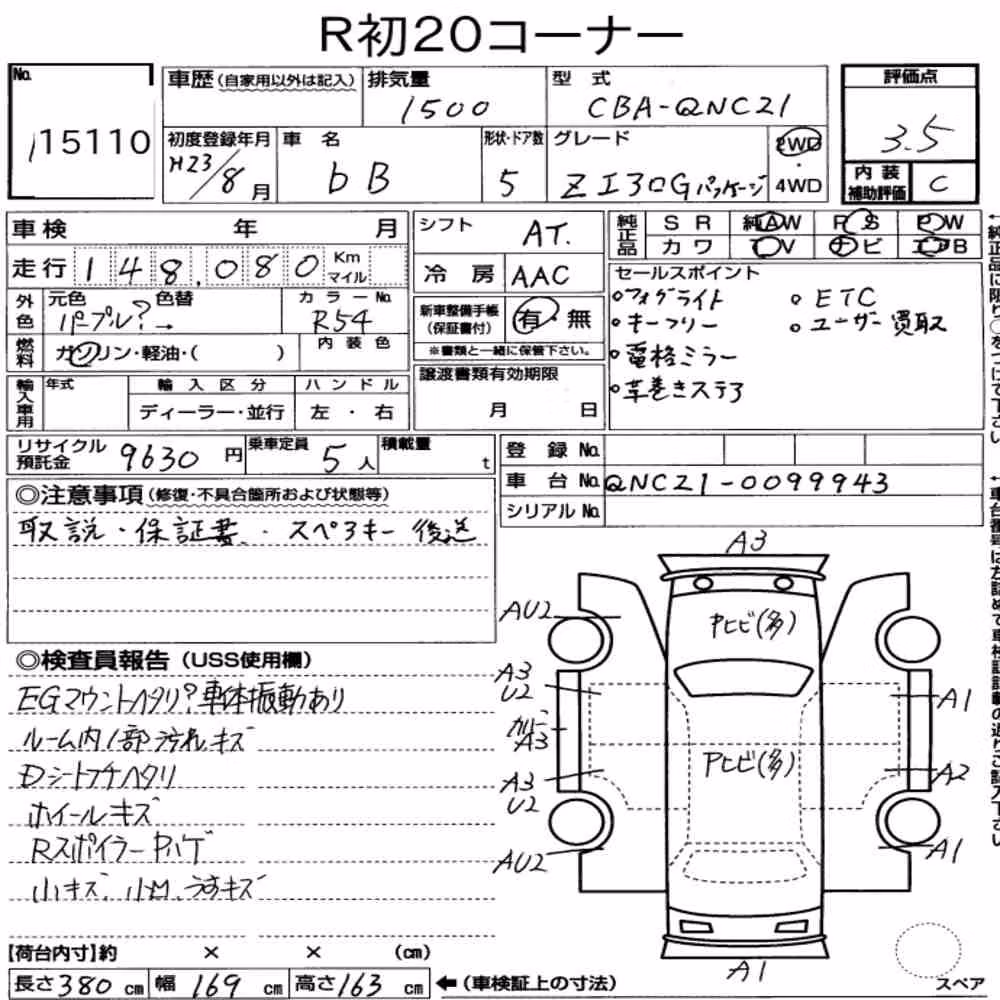 R初20コーナー
No. 15110
車歴(自家用以外は記入) 排気量 1500 型式 CBA-QNC21 評価点 3.5
初度登録年月 H23/8月 車名 bB 形状・ドア数 5 グレード Z X 30Gパッケージ 2WD・4WD 内装補助評価 C
車検 年 月 シフト AT. 純正品 SR 純AW PS PW
カワ TV ナビ エアB
走行 148,080 Km マイル 冷房 AAC
外色 元色 パープル?→ 色替 カラーNo. R54
新車整備手帳(保証書付) 有・無
※書類と一緒に保管下さい。
燃料 ガソリン・軽油・( ) 内装色
セールスポイント
○フォグライト ○ETC
○キーフリー ○ユーザー買取
○電格ミラー
○革巻きステア
輸入車用 年式 輸入区分 ハンドル
ディーラー・並行 左・右
譲渡書類有効期限
月 日
リサイクル預託金 9630円 乗車定員 5人 積載量 t
登録No.
車台No. QNC21-0099943
シリアルNo.
◎注意事項(修復・不具合箇所および状態等)
取説・保証書・スペアキー 後送
◎検査員報告(USS使用欄)
EGマウントヘタリ?車体振動あり
ルーム内1部汚れキズ
Dシートフチヘタリ
ホイールキズ
Rスポイラー Pハゲ
小キズ、小凹、うすキズ
A3
AU2
Pヒビ(多)
A3
U2
A1
A3
Pヒビ(多)
A3
U2
A2
AU2
A1
A1
スペア
【荷台内寸】約 × × (cm)
長さ380cm 幅169cm 高さ163cm ←(車検証上の寸法)